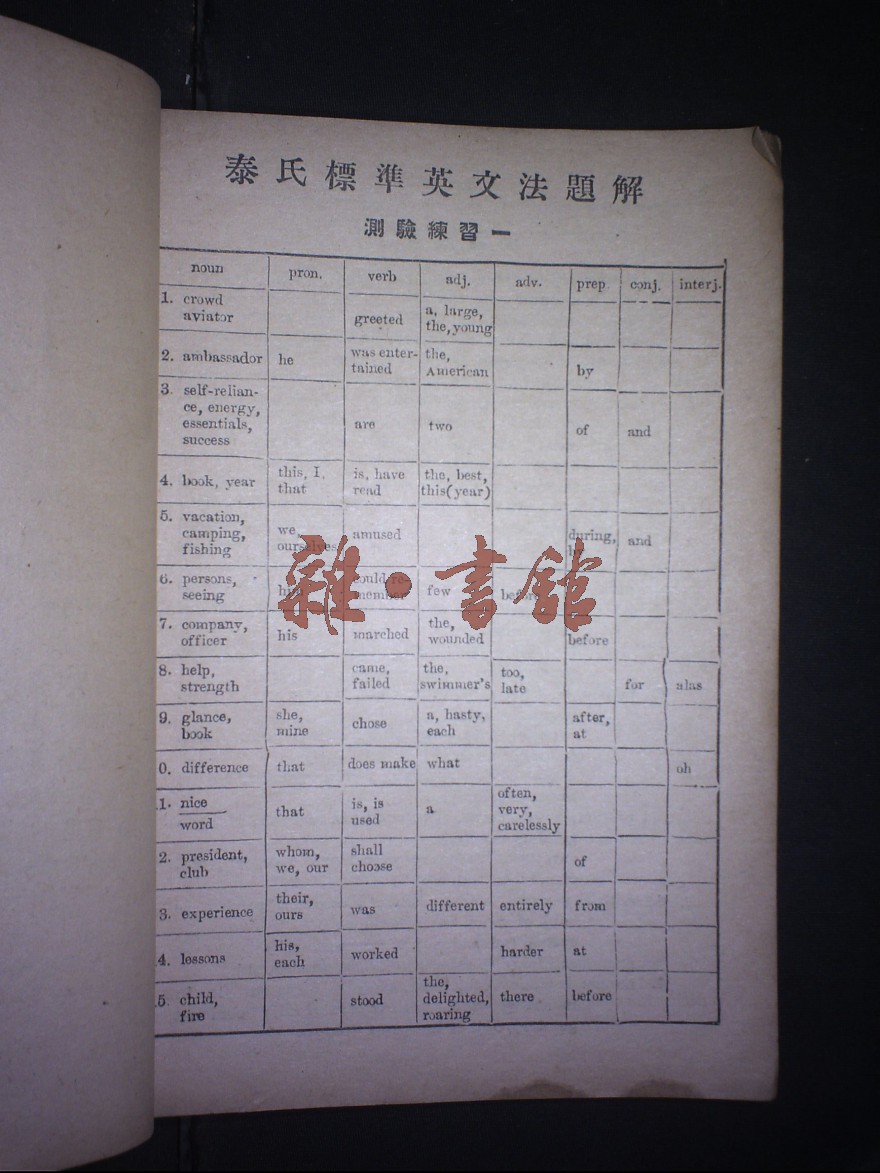 泰氏標準英文法題解
測驗練習一
noun pron. verb adj. adv. prep conj. interj.
1. crowd aviator greeted a, large, the, young
2. ambassador he was enter-tained the, American by
3. self-relian-ce, energy, essentials, success are two of and
4. book, year this, I, that is, have read the, best, this(year)
5. vacation, camping, fishing we, ourselves amused during, by and
6. persons, seeing him could re-member few before
7. company, officer his marched the, wounded before
8. help, strength came, failed the, swimmer's too, late for alas
9. glance, book she, mine chose a, hasty, each after, at
0. difference that does make what oh
1. nice word that is, is used a often, very, carelessly
2. president, club whom, we, our shall choose of
3. experience their, ours was different entirely from
4. lessons his, each worked harder at
5. child, fire stood the, delighted, roaring there before
雜·書館